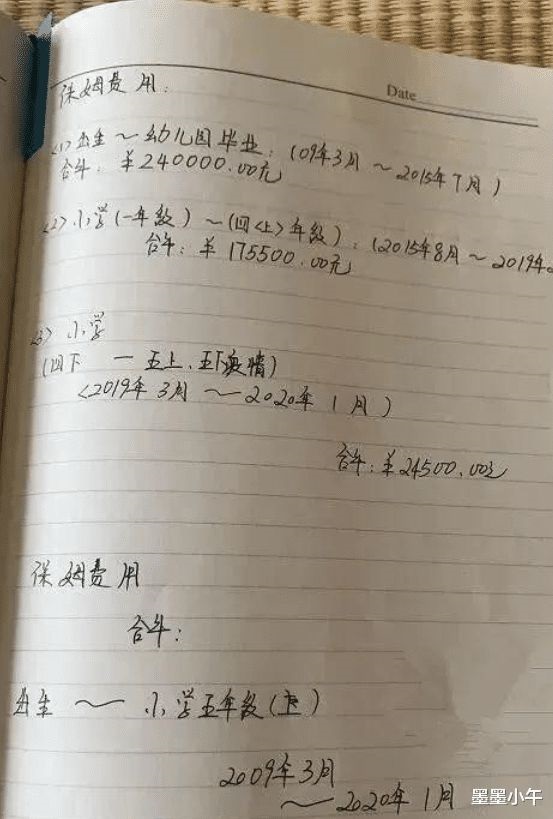 Date
保姆费用:
<1> 出生～幼儿园毕业: (09年3月～2015年7月)
合计: ¥240000.00元
<2> 小学(一年级)～(四<上>年级): (2015年8月～2019年
合计: ¥175500.00元
<3> 小学
(四下 — 五上、五下疫情)
<2019年3月～2020年1月)
合计: ¥24500.00元
保姆费用
合计:
出生～小学五年级(上)
2009年3月
～2020年1月
墨墨小午